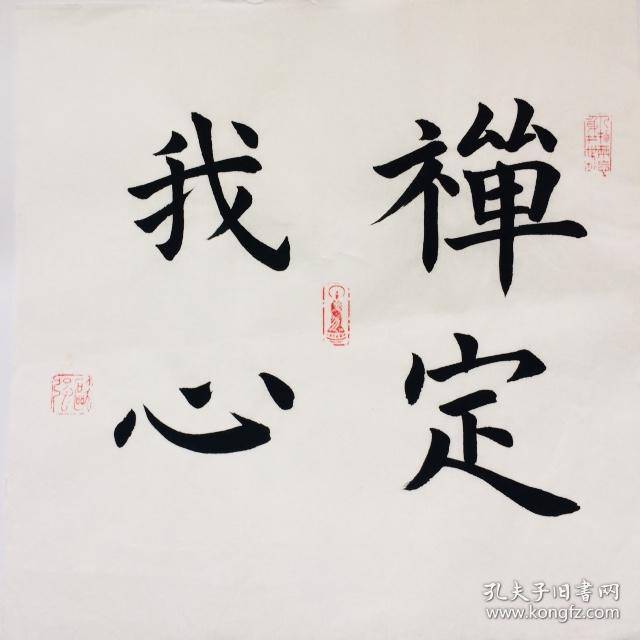 禪定
我心
孔夫子旧書网
www.kongfz.com